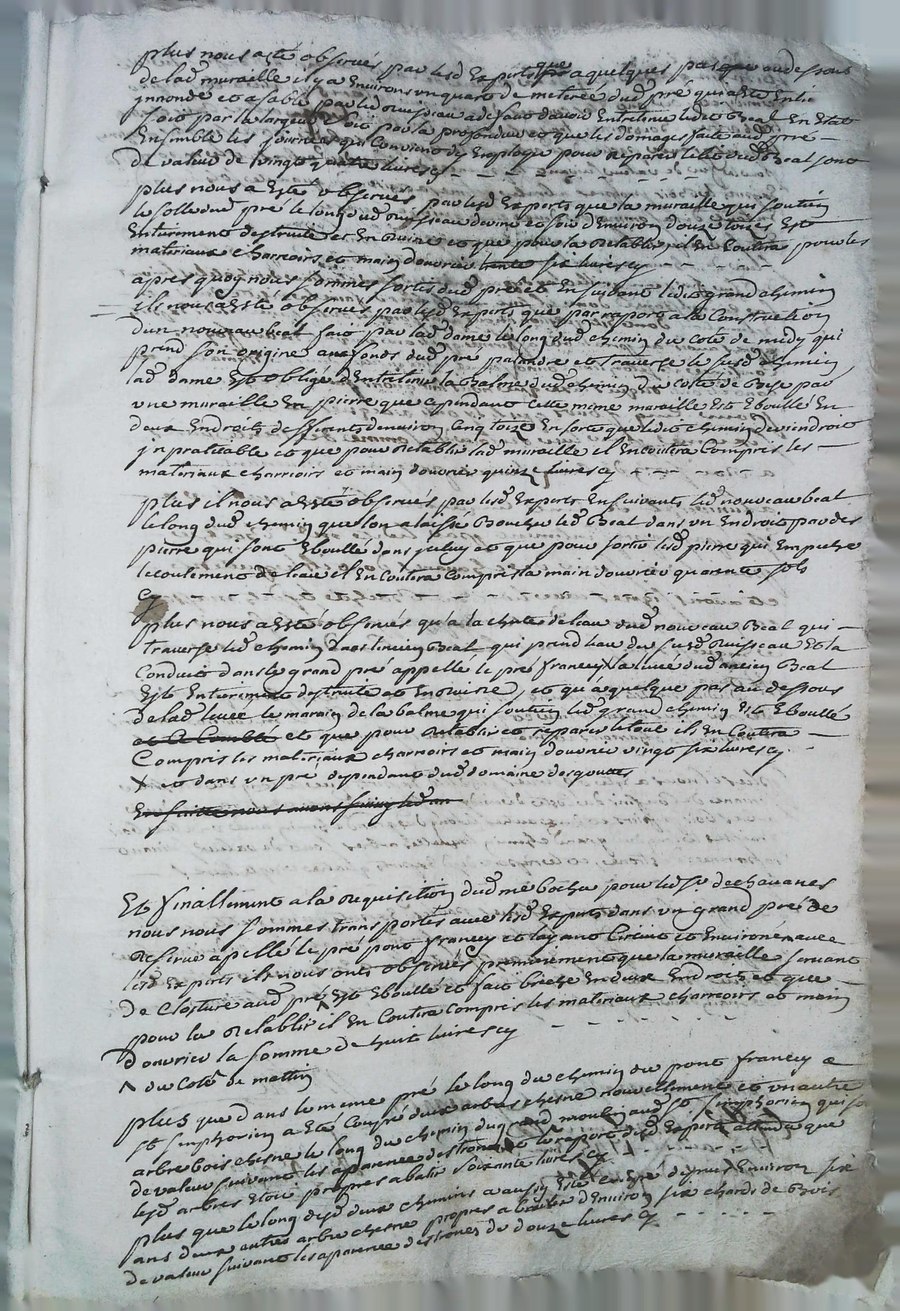 plus nous a été observés par lesd Experts que a quelques pas au dessous
de lad muraille il y a Environs un quart de meterée dud pré qui a Esté
jnnondé et asablé par led ruisseau a deffaut davoir Entretenu ledit Beal En Estat
soit par la largeur soit par la profondeur et que les domages faits aud pré
Ensemble les journées qui Convient dy Employer pour reparer le lit dud Beal sont
de valeur de vingt quatre livres cy
plus nous a Esté observés par lesd Experts que la muraille qui soutien
le solle dud pré le long dud ruisseau devine et soir d'Environ douze toizes Est
Entierement destruite et En Ruine et que pour la Retablir il En Coutera pour les
materiaux charroirs et main douvrier trente six livres cy
apres quoy nous sommes sortis dud pré et En suivant ledit grand chemin
il nous a Esté observes par lesd Experts que par raport a la Construction
dun nouveau beal fait par lad dame le long dud chemin du coté de midy qui
prend son origine au fonds dud pré et traverse le susd chemin
lad dame Est obligé d'Entretenir la Balme dud chemin du coté de Bise par
une muraille En pierre que cependant cette meme muraille Est Eboullé En
deux Endroits differents denviron Cinq toize En sorte que ledit chemin deviendroit
jnpratitable et que pour Retablir lad muraille il En coutera Compris les
materiaux charroirs et main douvrier quinze livres cy
plus il nous a Esté observés par lesd Experts En suivants led nouveau beal
le long dud chemin que lon a laissé Boucher led Beal dans un Endroit par des
pierre qui sont Eboullé dans jceluy et que pour sortir lesd pierre qui Empeche
lecoulement de leau il En coutera Compris la main douvrier quarante sols
cy
plus nous a Esté observés qu'a la chute de leau dud nouveau Beal qui
traverse led chemin dans lancien Beal qui prend leau du susd Ruisseau Et la
Conduit dans le grand pré appellé le pré francey X la levée dud ancien Beal
Est Entierement destruite et En ruine, et qu'a quelque pas au dessous
de lad levée le marain de la balme qui soutien led grand chemin Est Eboullé
et que pour Retablir et reparer le tout il En Coutera
Compris les materiaux charroirs et main douvrier vingt six livres cy.
X et dans un pré dependant dud domaine des gouttes
Ensuitte nous avons suivy led
Et finallement a la requisition dud me Cochu pour led sr de chavanes
nous nous sommes transportés avec lesd Experts dans un grand pré de
Reserve apellé le pré pont francey et layant Circuit et Environé avec
lesd Experts ils nous onts observés premierement que la muraille servant
de Closture aud pré ^ Est Eboullé et fait breche En deux Endroits et que
pour la Retablir il En Coutera Compris les materiaux charroirs et main
douvrier la somme de huit livres cy
^ du Coté de mattin
plus que dans le meme pré le long du chemin du pont francey a
st simphorien a Eté Coupé deux arbres chesne nouvellement et un autre
arbre bois chesne le long du chemin du grand moulin aud st simphorien qui sont
de valeur suivant les aparence des troncs et le raport desd Experts attendu que
lesd arbres Etoit propres a batir soixante livres cy
plus que le long desd deux chemins a aussy Esté Coupé depuis d'Environ six
ans deux autres arbre chesne propres a bruler d'Environ six chards de Bois
de valeur suivant les aparence des troncs de douze livres cy